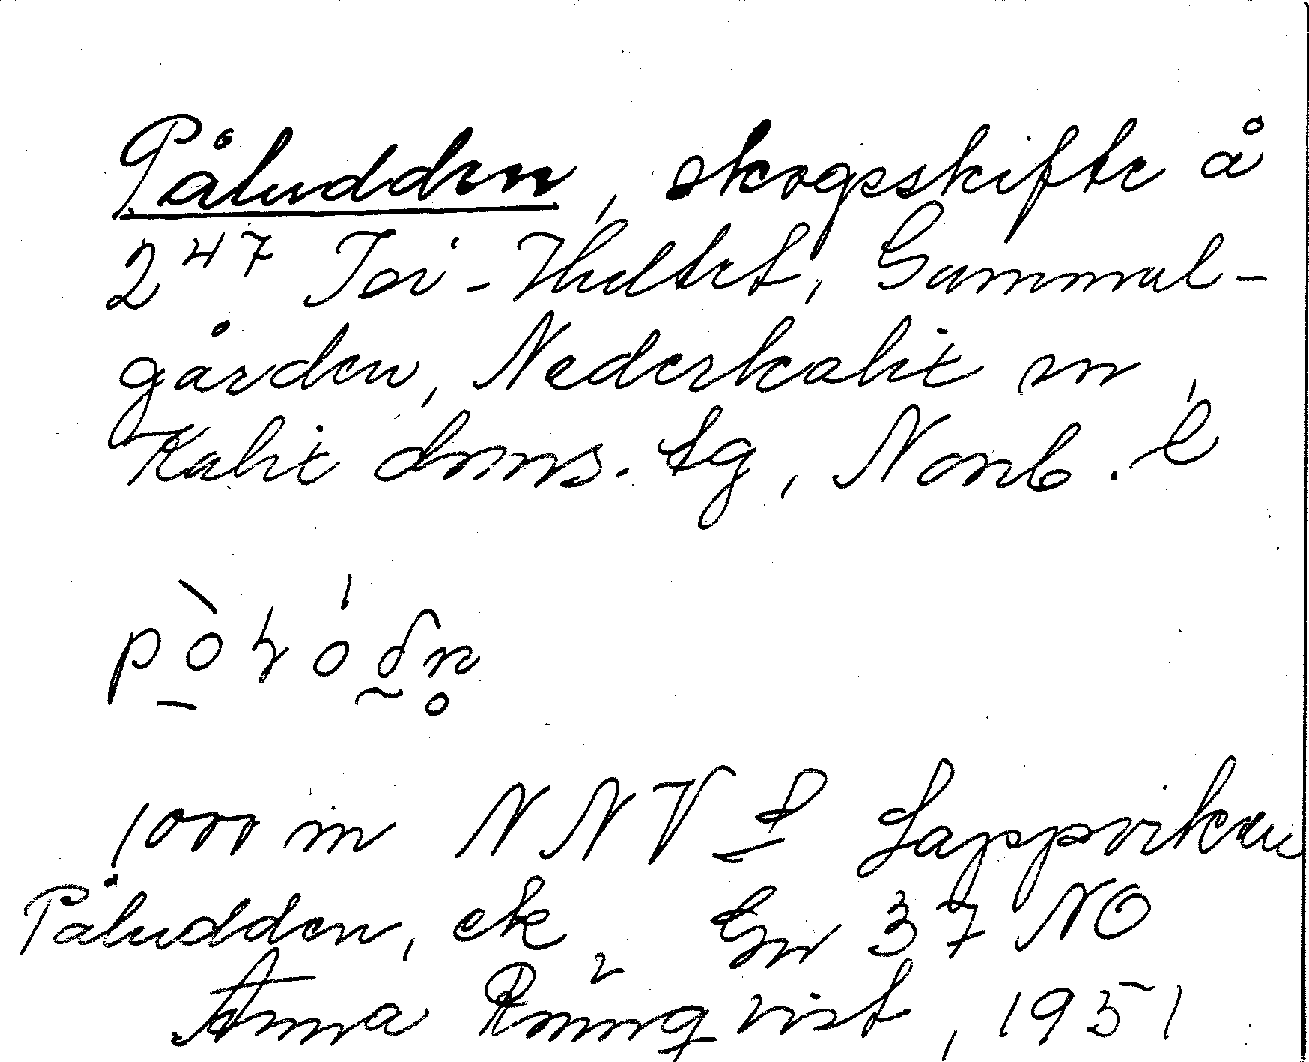 Påludden, skogsskifte å
2⁴⁷ Isi-Hultet, Gammel-
gården, Nederkalix sn,
Kalix doms. tg, Norrb. l
1000 m NNV Lappviken
Påludden, ek. Gw 37 NO
Anna Rönnqvist, 1951